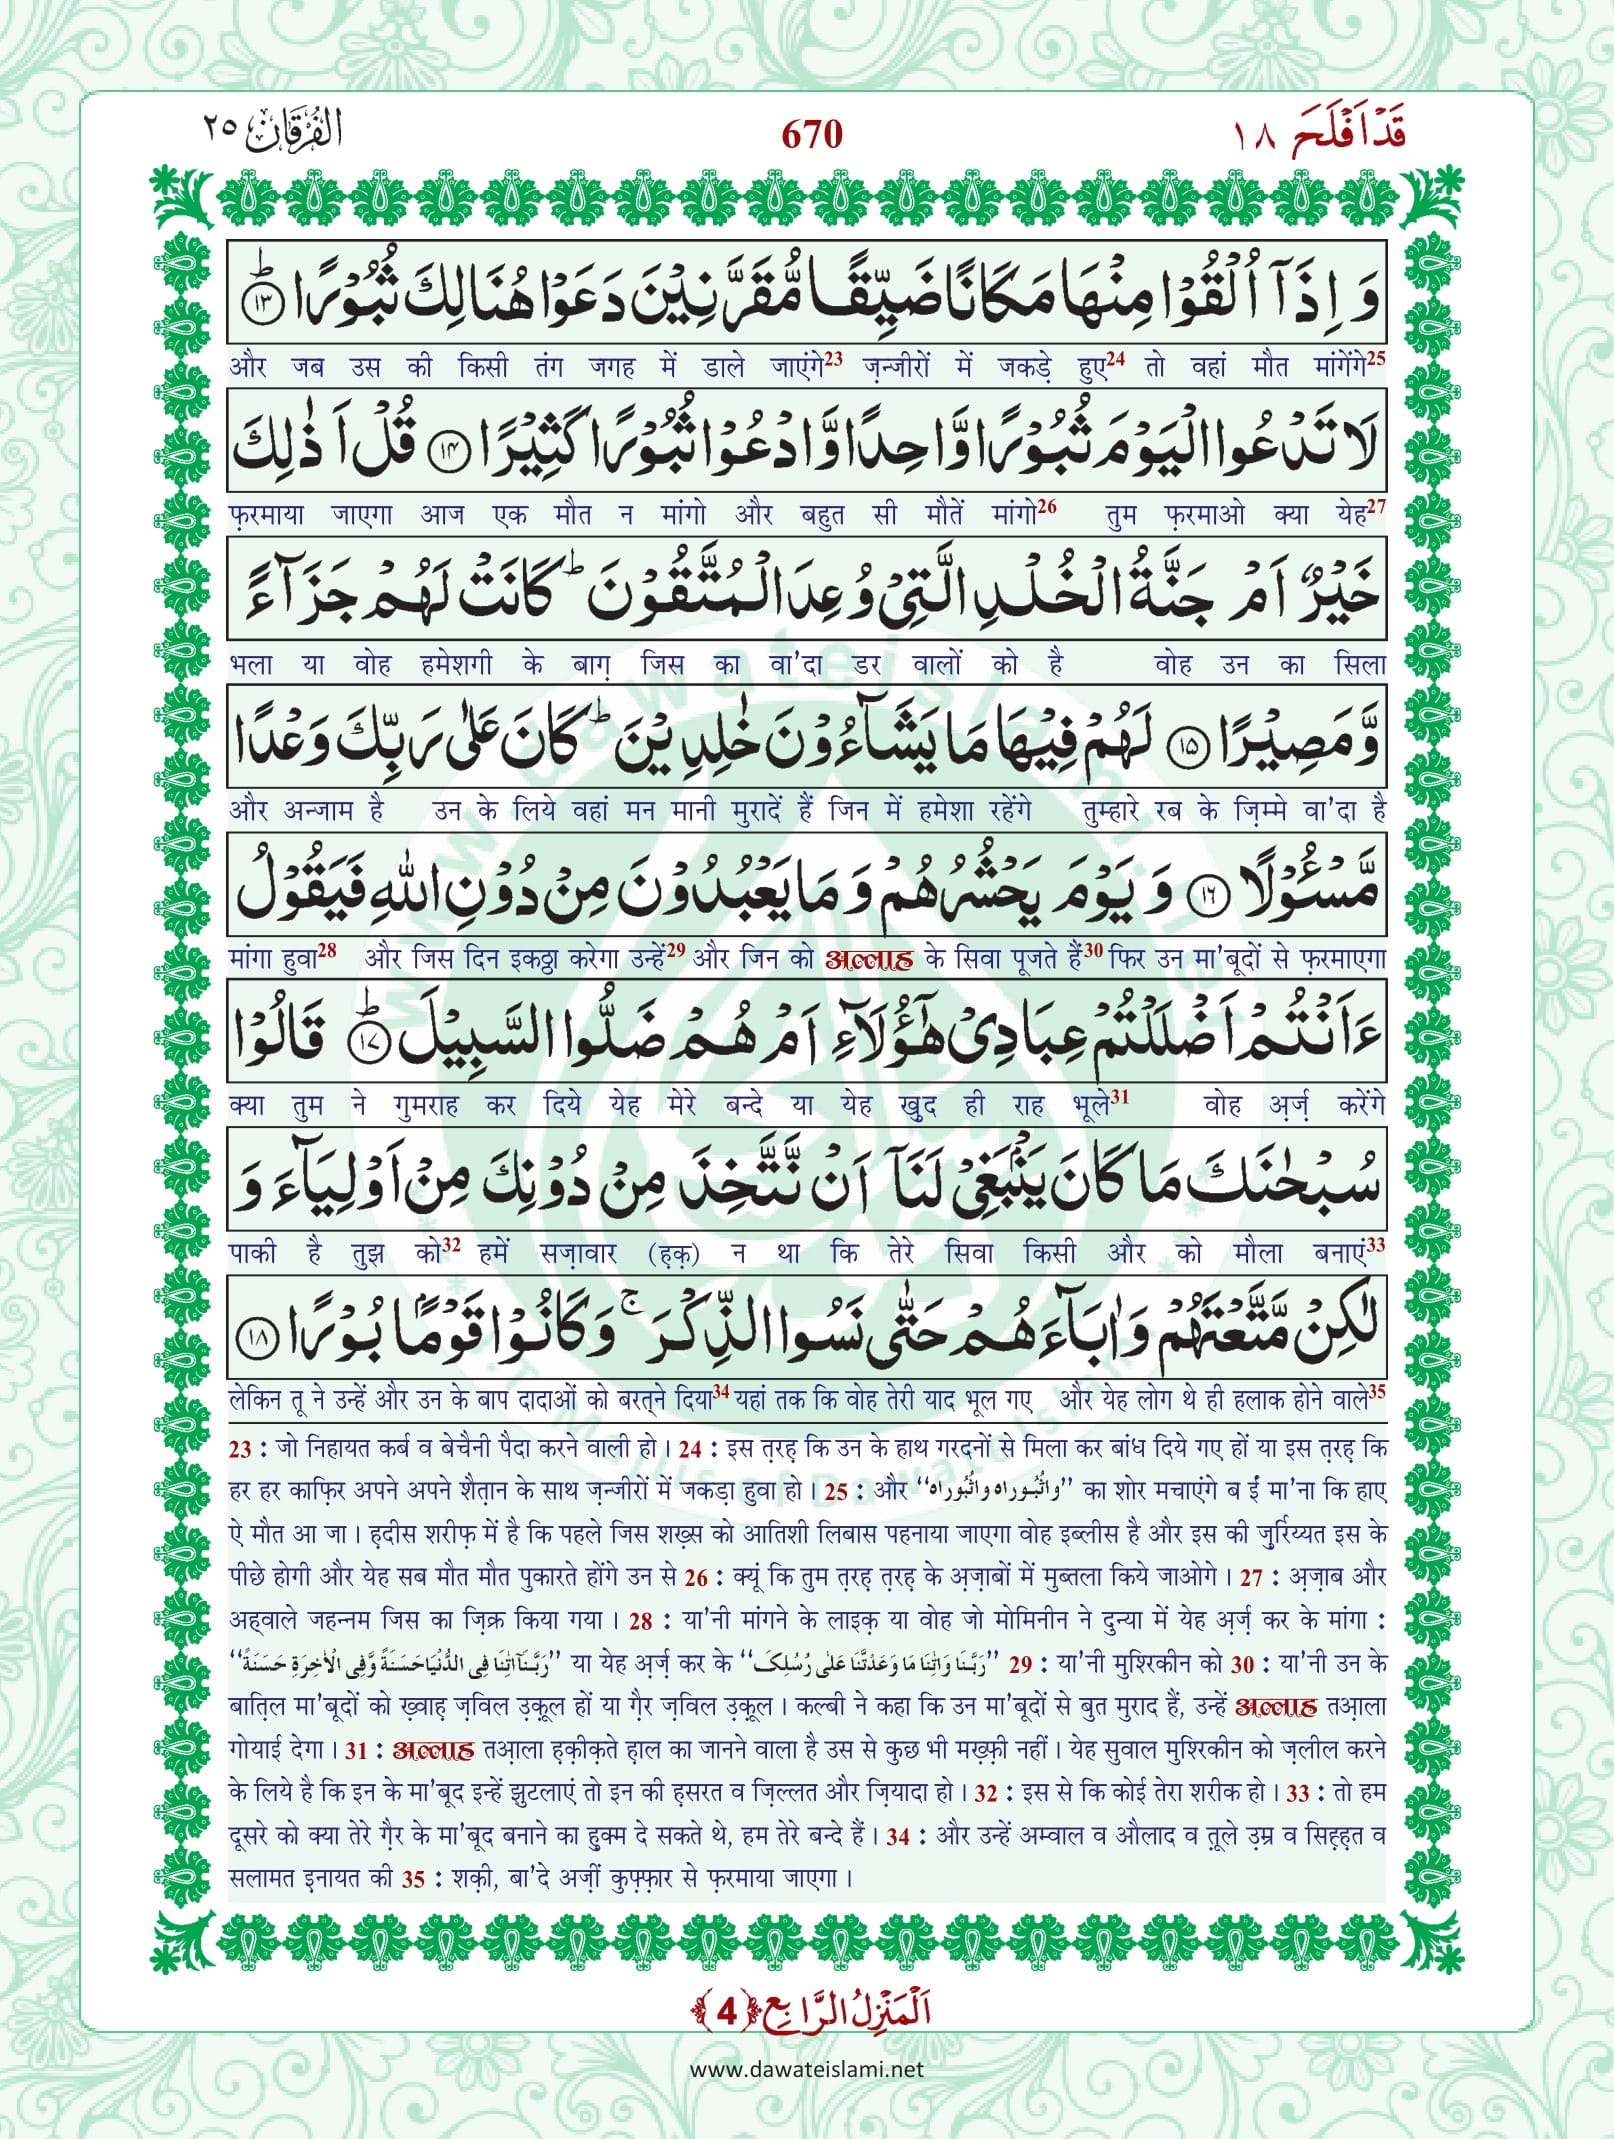 الفرقان ٢٥ 670 قَدْ اَفْلَحَ ١٨
وَ اِذَاۤ اُلْقُوْا مِنْهَا مَكَانًا ضَیِّقًا مُّقَرَّنِیْنَ دَعَوْا هُنَالِكَ ثُبُوْرًاؕ۝۱۳
और जब उस की किसी तंग जगह में डाले जाएंगे23 ज़न्जीरों में जकड़े हुए24 तो वहां मौत मांगेंगे25
لَا تَدْعُوا الْیَوْمَ ثُبُوْرًا وَّاحِدًا وَّ ادْعُوْا ثُبُوْرًا كَثِیْرًا۝۱۴ قُلْ اَذٰلِكَ
फ़रमाया जाएगा आज एक मौत न मांगो और बहुत सी मौतें मांगो26 तुम फ़रमाओ क्या येह27
خَیْرٌ اَمْ جَنَّةُ الْخُلْدِ الَّتِیْ وُعِدَ الْمُتَّقُوْنَؕ كَانَتْ لَهُمْ جَزَآءً
भला या वोह हमेशगी के बाग़ जिस का वा'दा डर वालों को है वोह उन का सिला
وَّ مَصِیْرًا۝۱۵ لَهُمْ فِیْهَا مَا یَشَآءُوْنَ خٰلِدِیْنَؕ كَانَ عَلٰى رَبِّكَ وَعْدًا
और अन्जाम है उन के लिये वहां मन मानी मुरादें हैं जिन में हमेशा रहेंगे तुम्हारे रब के ज़िम्मे वा'दा है
مَّسْـُٔوْلًا۝۱۶ وَ یَوْمَ یَحْشُرُهُمْ وَ مَا یَعْبُدُوْنَ مِنْ دُوْنِ اللّٰهِ فَیَقُوْلُ
मांगा हुवा28 और जिस दिन इकठ्ठा करेगा उन्हें29 और जिन को अल्लाह के सिवा पूजते हैं30 फिर उन मा'बूदों से फ़रमाएगा
ءَاَنْتُمْ اَضْلَلْتُمْ عِبَادِیْ هٰۤؤُلَآءِ اَمْ هُمْ ضَلُّوا السَّبِیْلَؕ۝۱۷ قَالُوْا
क्या तुम ने गुमराह कर दिये येह मेरे बन्दे या येह खुद ही राह भूले31 वोह अर्ज़ करेंगे
سُبْحٰنَكَ مَا كَانَ یَنْۢبَغِیْ لَنَاۤ اَنْ نَّتَّخِذَ مِنْ دُوْنِكَ مِنْ اَوْلِیَآءَ وَ
पाकी है तुझ को32 हमें सज़ावार (ह़क़) न था कि तेरे सिवा किसी और को मौला बनाएं33
لٰكِنْ مَّتَّعْتَهُمْ وَ اٰبَآءَهُمْ حَتّٰى نَسُوا الذِّكْرَۚ وَ كَانُوْا قَوْمًۢا بُوْرًا۝۱۸
लेकिन तू ने उन्हें और उन के बाप दादाओं को बरत्ने दिया34 यहां तक कि वोह तेरी याद भूल गए और येह लोग थे ही हलाक होने वाले35
23 : जो निहायत कर्ब व बेचैनी पैदा करने वाली हो। 24 : इस त़रह़ कि उन के हाथ गरदनों से मिला कर बांध दिये गए हों या इस त़रह़ कि
हर हर काफ़िर अपने अपने शैत़ान के साथ ज़न्जीरों में जकड़ा हुवा हो। 25 : और "واثُبوراہ واثُبوراہ" का शोर मचाएंगे ब ईं मा'ना कि हाए
ऐ मौत आ जा। ह़दीस शरीफ़ में है कि पहले जिस शख़्स को आतिशी लिबास पहनाया जाएगा वोह इब्लीस है और इस की ज़ुर्रिय्यत इस के
पीछे होगी और येह सब मौत मौत पुकारते होंगे उन से 26 : क्यूं कि तुम त़रह़ त़रह़ के अ़ज़ाबों में मुब्तला किये जाओगे। 27 : अ़ज़ाब और
अह्वाले जहन्नम जिस का ज़िक्र किया गया। 28 : या'नी मांगने के लाइक़ या वोह जो मोमिनीन ने दुन्या में येह अ़र्ज़ कर के मांगा :
"رَبَّنَاۤ اٰتِنَا فِی الدُّنْیَا حَسَنَةً وَّفِی الْاٰخِرَةِ حَسَنَةً" या येह अ़र्ज़ कर के "رَبَّنَا وَاٰتِنَا مَا وَعَدْتَّنَا عَلٰی رُسُلِکَ" 29 : या'नी मुश्रिकीन को 30 : या'नी उन के
बात़िल मा'बूदों को ख़्वाह ज़विल उ़क़ूल हों या ग़ैर ज़विल उ़क़ूल। कल्बी ने कहा कि उन मा'बूदों से बुत मुराद हैं, उन्हें अल्लाह तआ़ला
गोयाई देगा। 31 : अल्लाह तआ़ला ह़क़ीक़ते ह़ाल का जानने वाला है उस से कुछ भी मख़्फ़ी नहीं। येह सुवाल मुश्रिकीन को ज़लील करने
के लिये है कि इन के मा'बूद इन्हें झुटलाएं तो इन की ह़सरत व ज़िल्लत और ज़ियादा हो। 32 : इस से कि कोई तेरा शरीक हो। 33 : तो हम
दूसरे को क्या तेरे ग़ैर के मा'बूद बनाने का ह़ुक्म दे सकते थे, हम तेरे बन्दे हैं। 34 : और उन्हें अम्वाल व औलाद व त़ूले उ़म्र व सिह़्ह़त व
सलामत इ़नायत की 35 : शक़ी, बा'दे अर्ज़ीं कुफ़्फ़ार से फ़रमाया जाएगा।
اَلْمَنْزِلُ الرَّابِعُ ﴿4﴾
www.dawateislami.net